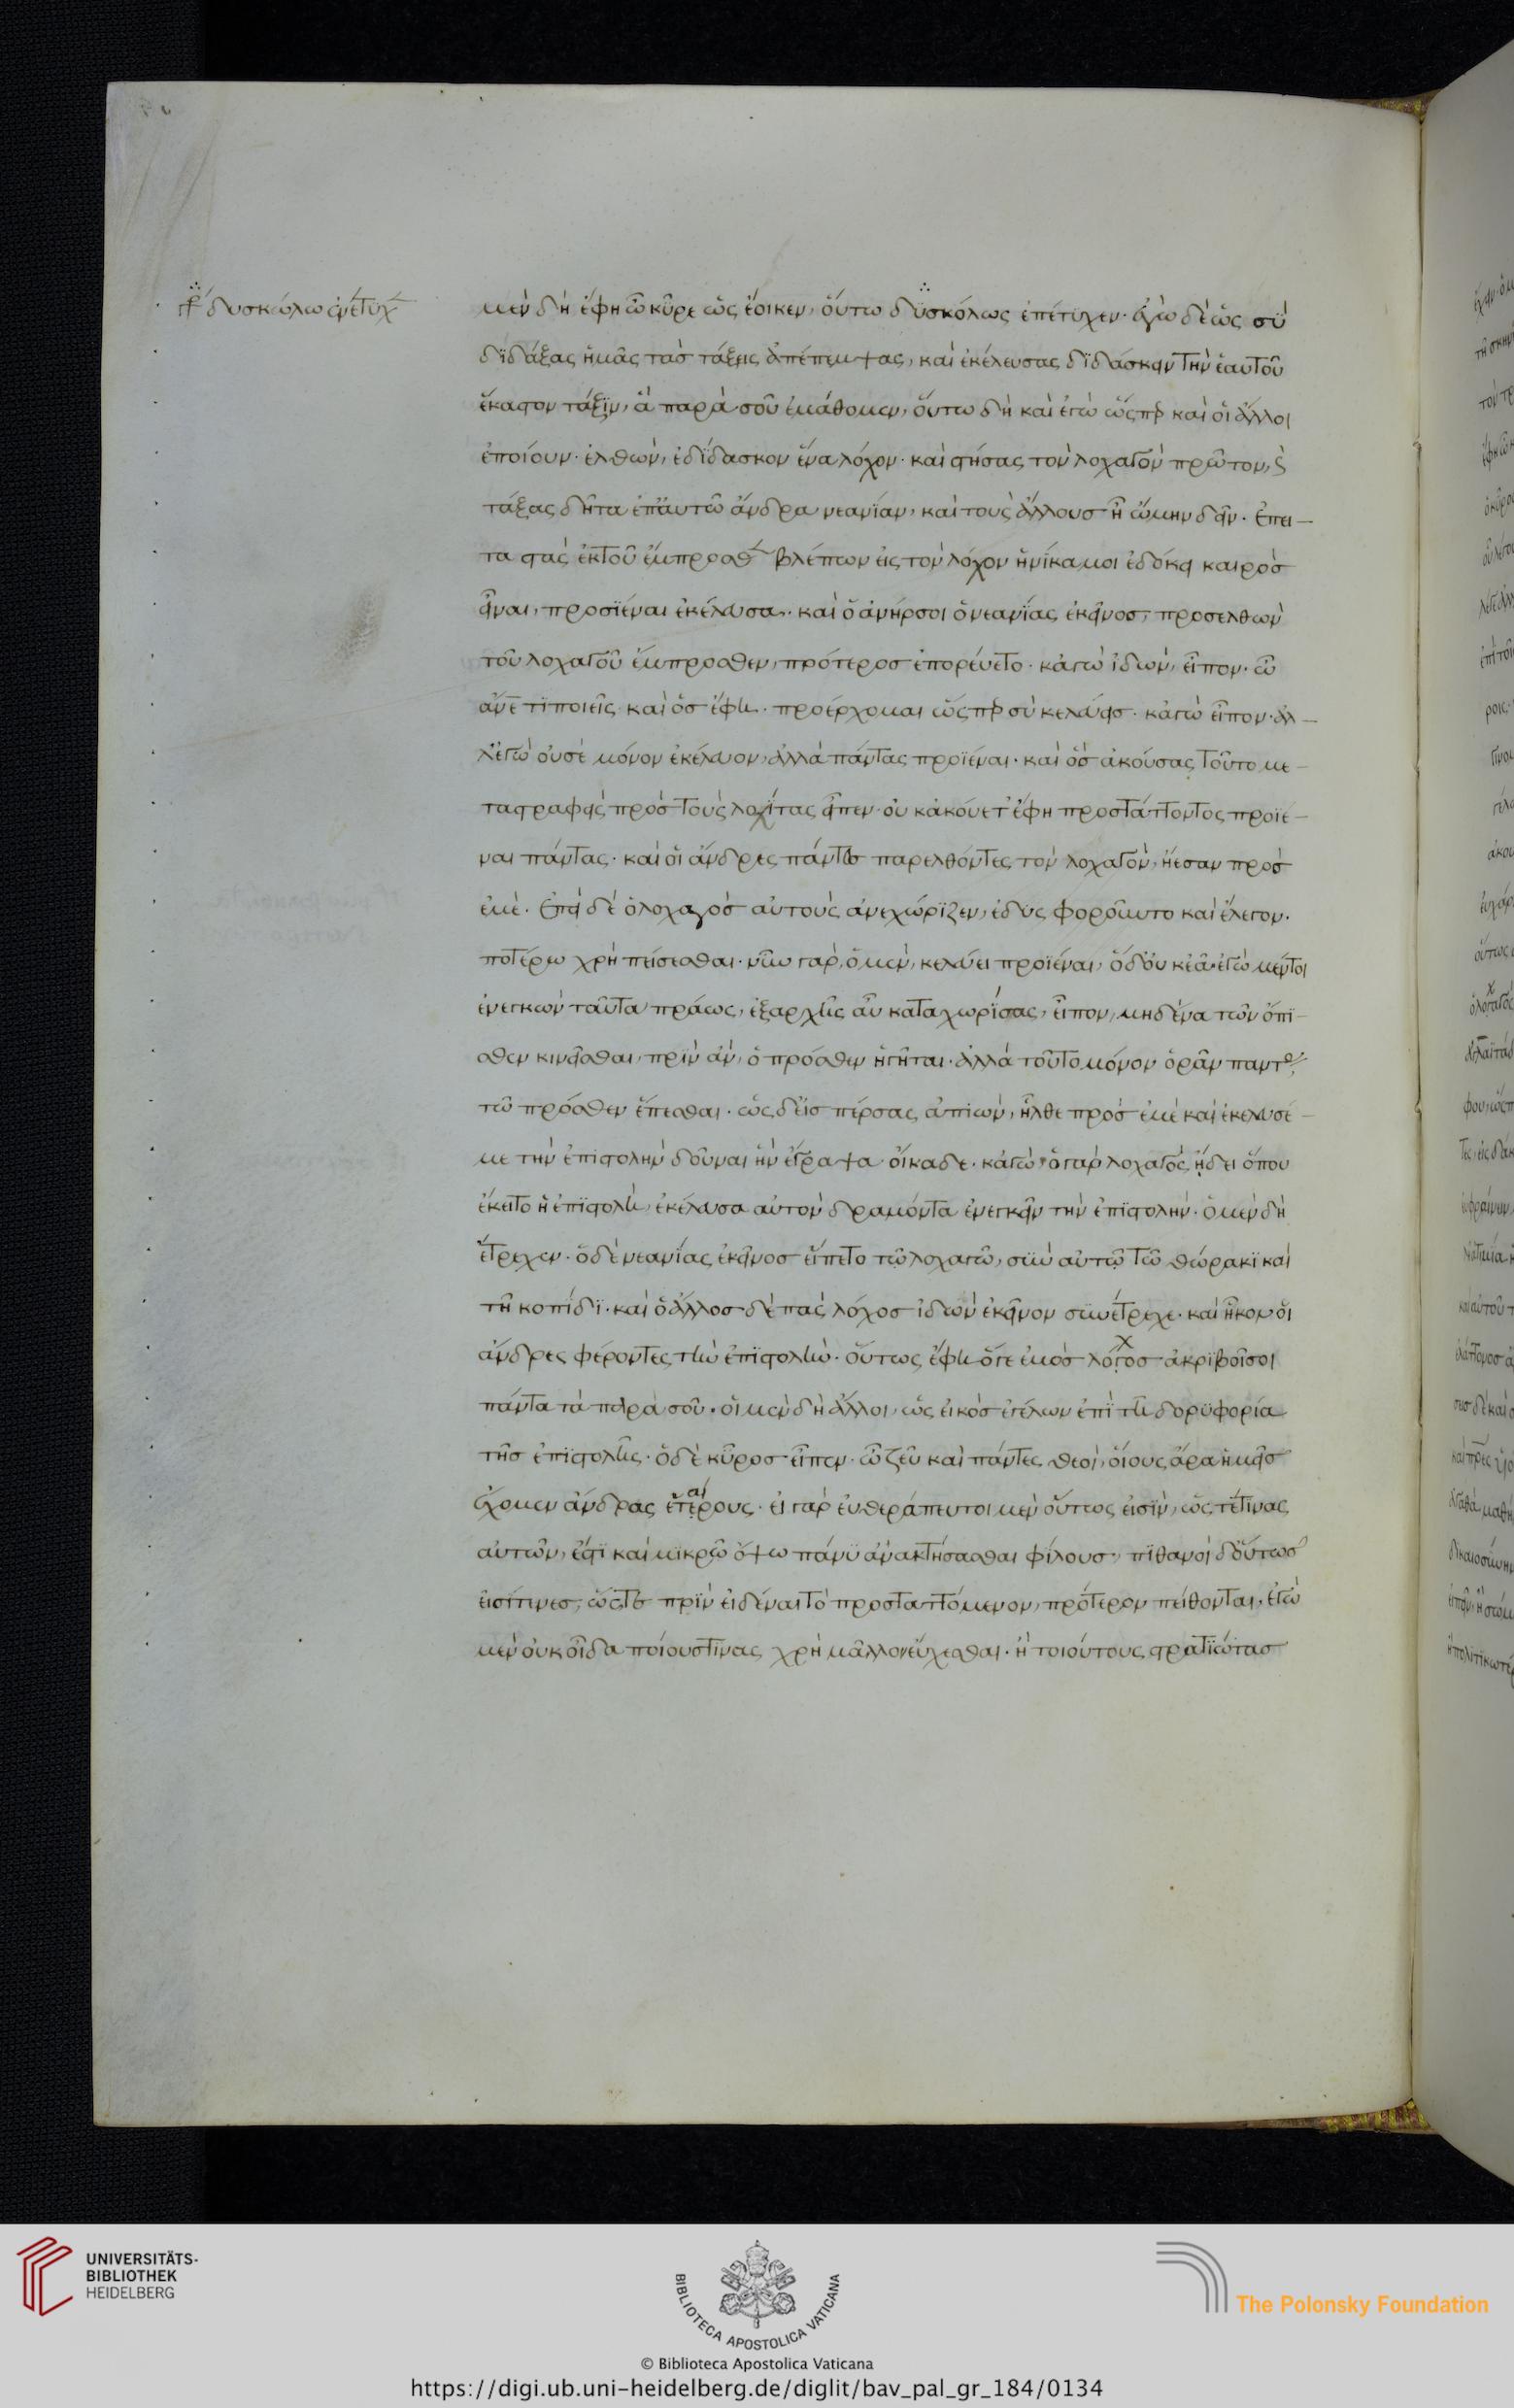 γρ΄ δυσκώλω ἐνέτυχ
μὲν δὴ ἔφη ὦ κῦρε ὡς ἔοικεν, οὕτω δϋσκόλως ἐπέτυχεν· ἐγὼ δὲ ὡς σὺ
δϊδάξας ἡμᾶς τὰσ τάξεις ἀπέπεμψας, καὶ ἐκέλευσας δϊδάσκειν τὴν ἑαυτοῦ
ἕκαστον τάξϊν, ἃ παρὰ σοῦ ἐμάθομεν, οὕτω δὴ καὶ ἐγὼ ὥσπερ καὶ οἱ ἄλλοι
ἐποίουν· ἐλθὼν, ἐδίδασκον ἕνα λόχον· καὶ στήσας τὸν λοχαγὸν πρῶτον, καὶ
τάξας δῆτα ἐπ' αὐτῶ ἄνδρα νεανίαν, καὶ τοὺς ἄλλουσ ἧ ὤμην δεῖν. ἔπει–
τα στὰς ἐκ τοῦ ἔμπροσθ βλέπων εἰς τὸν λόχον ἡνίκα μοι ἐδόκει καιρὸσ
εἶναι, προσϊέναι ἐκέλευσα. καὶ ὁ ἀνήρσοι ὁ νεανίας ἐκεῖνοσ, προσελθὼν
τοῦ λοχαγοῦ ἔμπροσθεν, πρότεροσ ἐπορεύετο. κἀγὼ ἰδὼν, εἶπον. ὦ
ἄνε τί ποιεῖς· καὶ ὃσ ἔφη. προέρχομαι ὥσπερ σὺ κελεύεισ. κἀγὼ εἶπον. ἀλ–
λ' ἐγὼ οὐ σὲ μόνον ἐκέλευον, ἀλλὰ πάντας προϊέναι. καὶ ὃσ ἀκούσας τοῦτο με–
ταστραφεὶς πρὸσ τοὺς λοχίτας εἶπεν· οὐκ ἀκούετ' ἔφη προστάττοντος προϊέ–
ναι πάντας. καὶ οἱ ἄνδρες πάντεσ παρελθόντες τὸν λοχαγὸν, ἤεσαν πρὸσ
ἐμέ. ἐπεὶ δὲ ὁ λοχαγὸσ αὐτοὺς ἀνεχώρϊζεν, ἐδυς φοροῦντο καὶ ἔλεγον.
ποτέρω χρὴ πείσεσθαι· νῦν γὰρ, ὁ μὲν, κελεύει προϊέναι, ὁ δ' οὐκ ἐᾶ· ἐγὼ μέντοι
ἐνεγκὼν ταῦτα πράως, ἐξαρχῆς αὖ καταχωρίσας, εἶπον, μηδένα τῶν ὄπϊ–
σθεν κινεῖσθαι, πρὶν ἂν, ὁ πρόσθεν ἡγῆται. ἀλλὰ τοῦτο μόνον ὁρᾶν παντ
τῶ πρόσθεν ἕπεσθαι. ὡς δ' εἰσ πέρσας ἀπιὼν, ἦλθε πρὸσ ἐμὲ καὶ ἐκέλευσέ–
με τὴν ἐπιστολὴν δοῦναι ἣν ἔγραψα οἴκαδε. κἀγὼ· ὁ γὰρ λοχαγὸς, ᾔδει ὅπου
ἔκειτο ἡ ἐπϊστολὴ, ἐκέλευσα αὐτὸν δραμόντα ἐνεγκεῖν τὴν ἐπϊστολήν. ὁ μὲν δὴ
ἔτρεχεν. ὁ δὲ νεανίας ἐκεῖνοσ εἵπετο τῷ λοχαγῶ, σὺν αὐτῷ τῶ θώρακϊ καὶ
τῆ κοπίδϊ. καὶ ὁ ἄλλοσ δὲ πᾶς λόχοσ ἰδὼν ἐκεῖνον συνέτρεχε. καὶ ἧκον οἱ
ἄνδρες φέροντες τὴν ἐπϊστολὴν. οὕτως ἔφη ὅ γε ἐμὸσ λόγοσ ἀκρϊβοῖσοι
πάντα τὰ παρὰ σοῦ. οἱ μὲν δὴ ἄλλοι, ὡς εἰκὸσ ἐγέλων ἐπὶ τῆ δορϋφορία
τῆσ ἐπϊστολῆς. ὁ δὲ κῦροσ εἶπεν. ὦ ζεῦ καὶ πάντες θεοὶ, οἵους ἄρα ἡμεῖσ
ἔχομεν ἄνδρας ἑτέρους. εἰ γὰρ εὐθεράπευτοι μὲν οὕτως εἰσϊν, ὡς τέ τινας
αὐτῶν, ἔστϊ καὶ μϊκρῶ ὄψω πάνϋ ἀνακτήσασθαι φίλουσ, πϊθανοὶ δ' οὕτωσ
εἰσίτινεσ, ὥστε πρϊν εἰδέναι τὸ προσταττόμενον, πρότερον πείθονται, ἐγὼ
μὲν οὐκ οἶδα ποίουστϊνας χρὴ μᾶλλον εὔχεσθαι. ἢ τοιούτους στρατϊώτασ
UNIVERSITÄTS-
BIBLIOTHEK
HEIDELBERG
BIBLIOTECA APOSTOLICA VATICANA
The Polonsky Foundation
© Biblioteca Apostolica Vaticana
https://digi.ub.uni-heidelberg.de/diglit/bav_pal_gr_184/0134